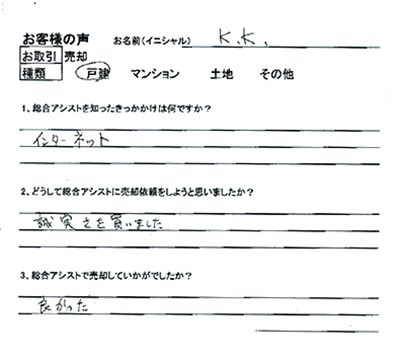 お客様の声 お名前(イニシャル) K.K.
お取引 売却
種類 戸建 マンション 土地 その他
1、総合アシストを知ったきっかけは何ですか?
インターネット
2、どうして総合アシストに売却依頼をしようと思いましたか?
誠実さを買いました
3、総合アシストで売却していかがでしたか?
良かった